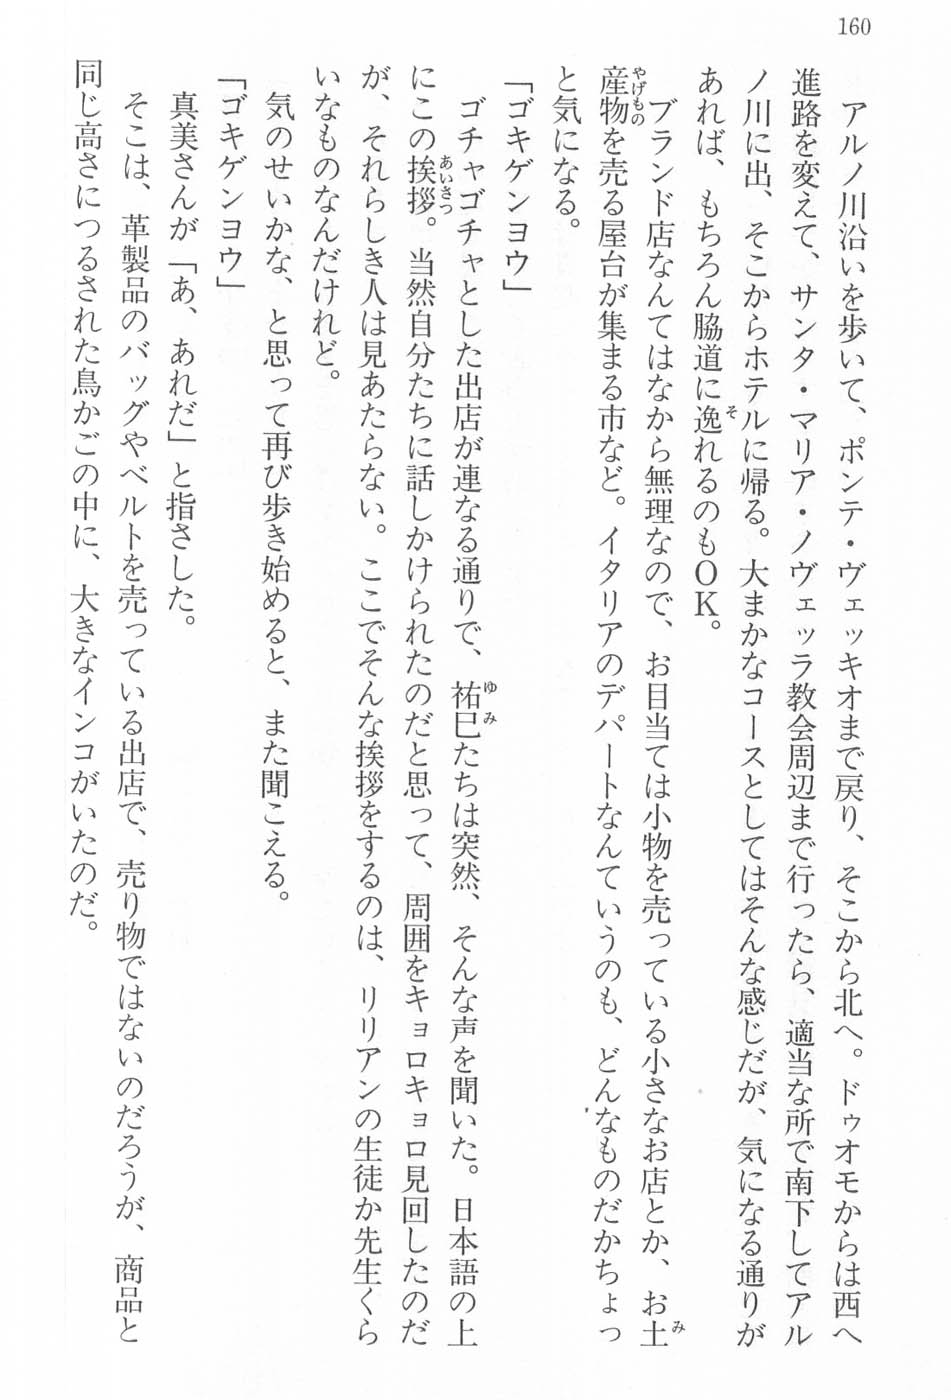 160
アルノ川沿いを歩いて、ポンテ・ヴェッキオまで戻り、そこから北へ。ドゥオモからは西へ
進路を変えて、サンタ・マリア・ノヴェッラ教会周辺まで行ったら、適当な所で南下してアル
ノ川に出、そこからホテルに帰る。大まかなコースとしてはそんな感じだが、気になる通りが
あれば、もちろん脇道に逸れるのもOK。
ブランド店なんてはなから無理なので、お目当ては小物を売っている小さなお店とか、お土
産物を売る屋台が集まる市など。イタリアのデパートなんていうのも、どんなものだかちょっ
と気になる。
「ゴキゲンヨウ」
ゴチャゴチャとした出店が連なる通りで、祐巳たちは突然、そんな声を聞いた。日本語の上
にこの挨拶。当然自分たちに話しかけられたのだと思って、周囲をキョロキョロ見回したのだ
が、それらしき人は見あたらない。ここでそんな挨拶をするのは、リリアンの生徒か先生くら
いなものなんだけれど。
気のせいかな、と思って再び歩き始めると、また聞こえる。
「ゴキゲンヨウ」
真美さんが「あ、あれだ」と指さした。
そこは、革製品のバッグやベルトを売っている出店で、売り物ではないのだろうが、商品と
同じ高さにつるされた鳥かごの中に、大きなインコがいたのだ。